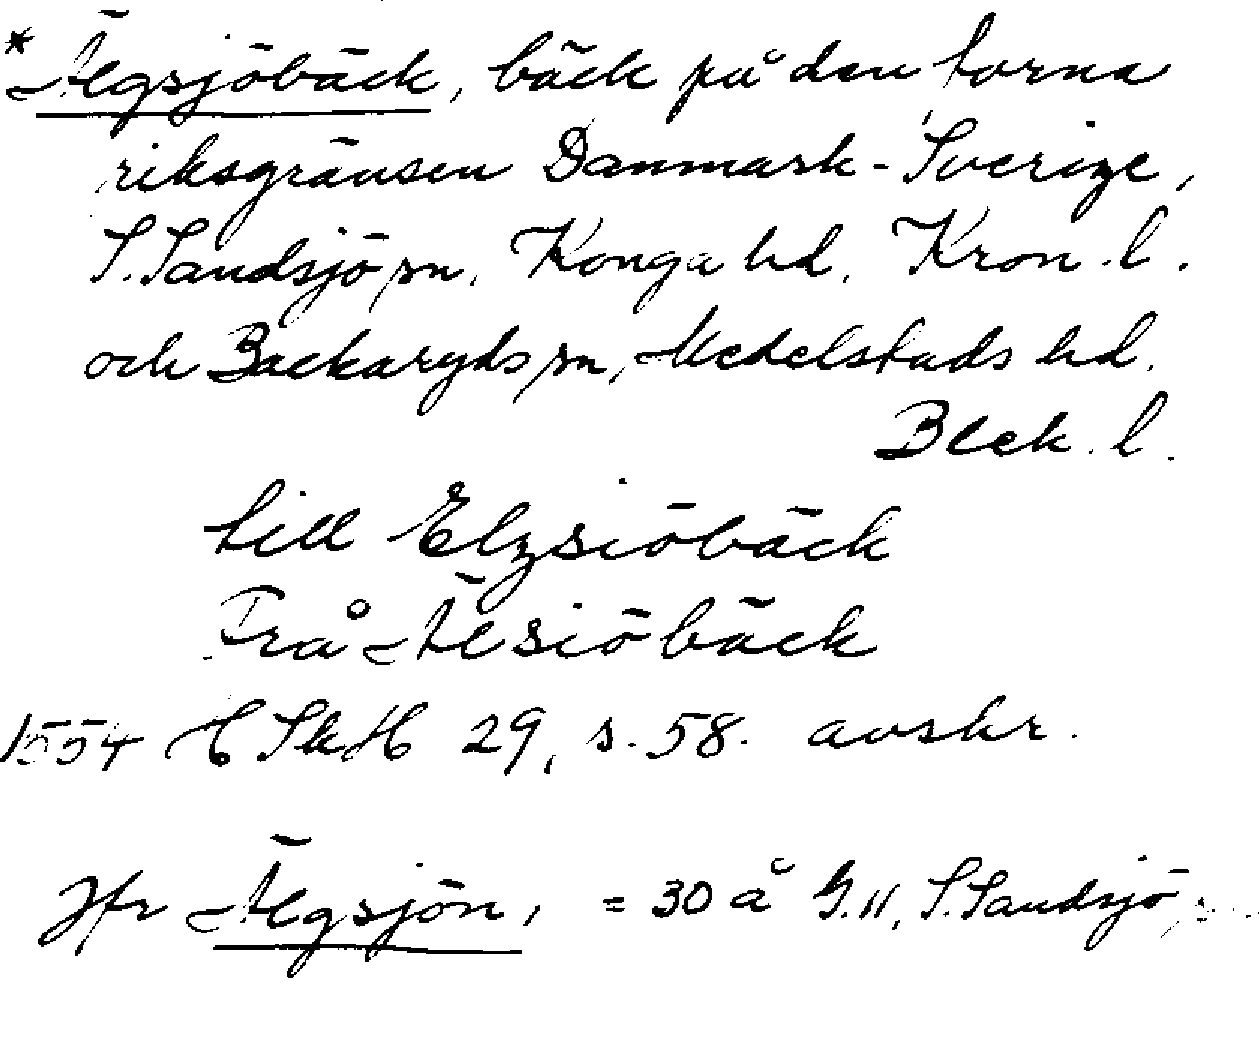 * Älgsjöbäck, bäck på den forna
riksgränsen Danmark-Sverige,
S. Sandsjö sn, Konga hd, Kron. l.
och Backaryds sn, Medelstads hd.
Blek. l.
till Elzsiöbäck
Frå Älsiöbäck
1554 HSkH 29, s. 58. avskr.
Jfr Älgsjön, = 30 å G. 11, S. Sandsjö